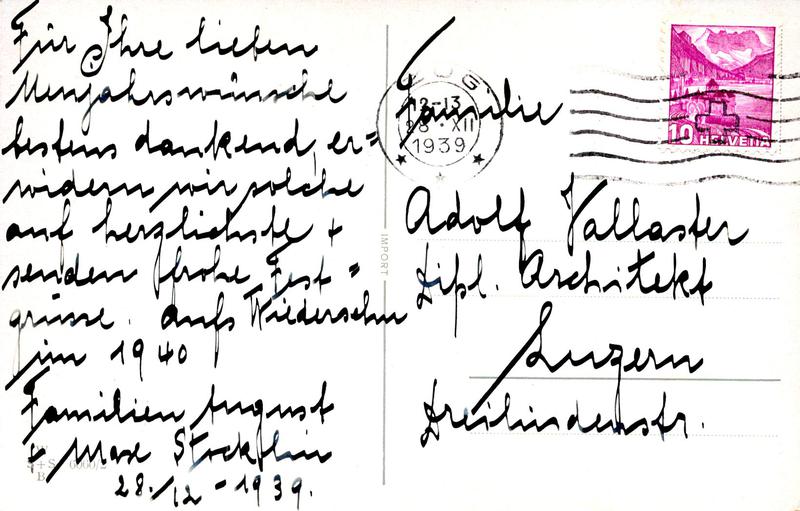 Für Ihre lieben
Neujahrswünsche
bestens dankend, er=
widern wir solche
auf herzlichste +
senden frohe Fest=
grüsse. Aufs Wiedersehn
im 1940
Familien August
+ Max Stocklin
28./12 - 1939.
S+S 6000/2
B
IMPORT
ZUG
12-13
28. XII
1939
10 HELVETIA
Familie
Adolf Vallaster
Dipl. Architekt
Luzern
Dreilindenstr.